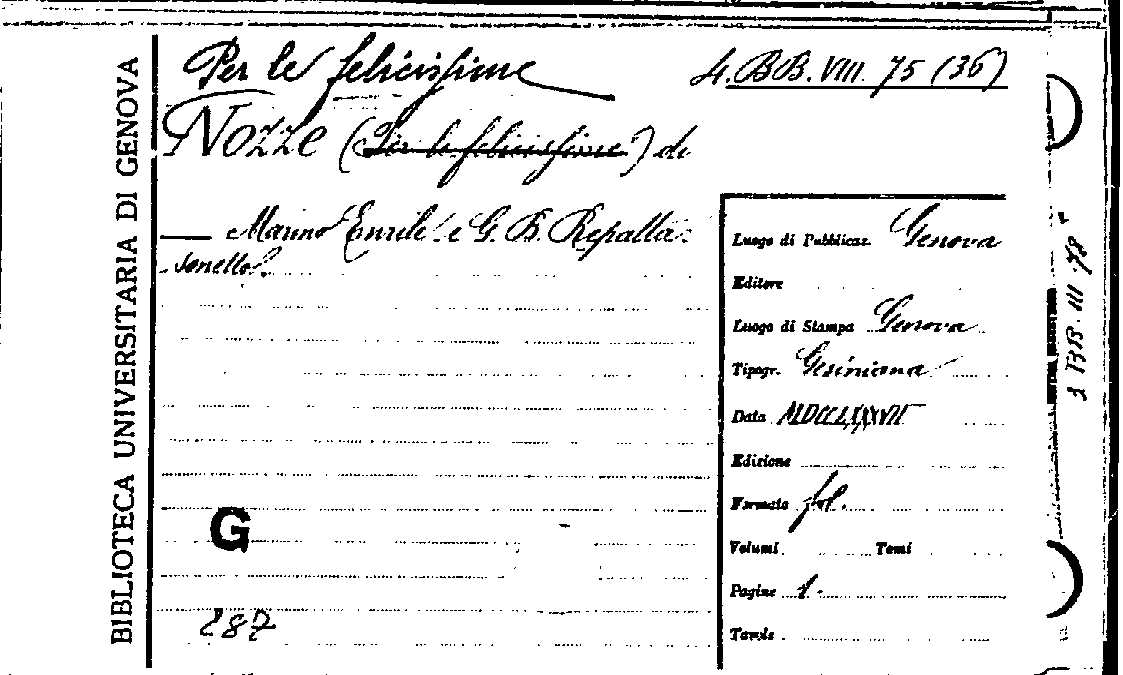 BIBLIOTECA UNIVERSITARIA DI GENOVA
Per le felicissime
4. BB. VIII. 75 (36)
Nozze (Per le felicissime) di
— Marino Enrile e G. B. Repalta
sonetto.
Luogo di Pubblicaz. Genova
Editore
Luogo di Stampa Genova
Tipogr. Gesiniana
Data MDCCLXXXVII
Edizione
Formato fol.
Volumi Tomi
Pagine 1.
Tavole
G
287
3 BB. III. 78